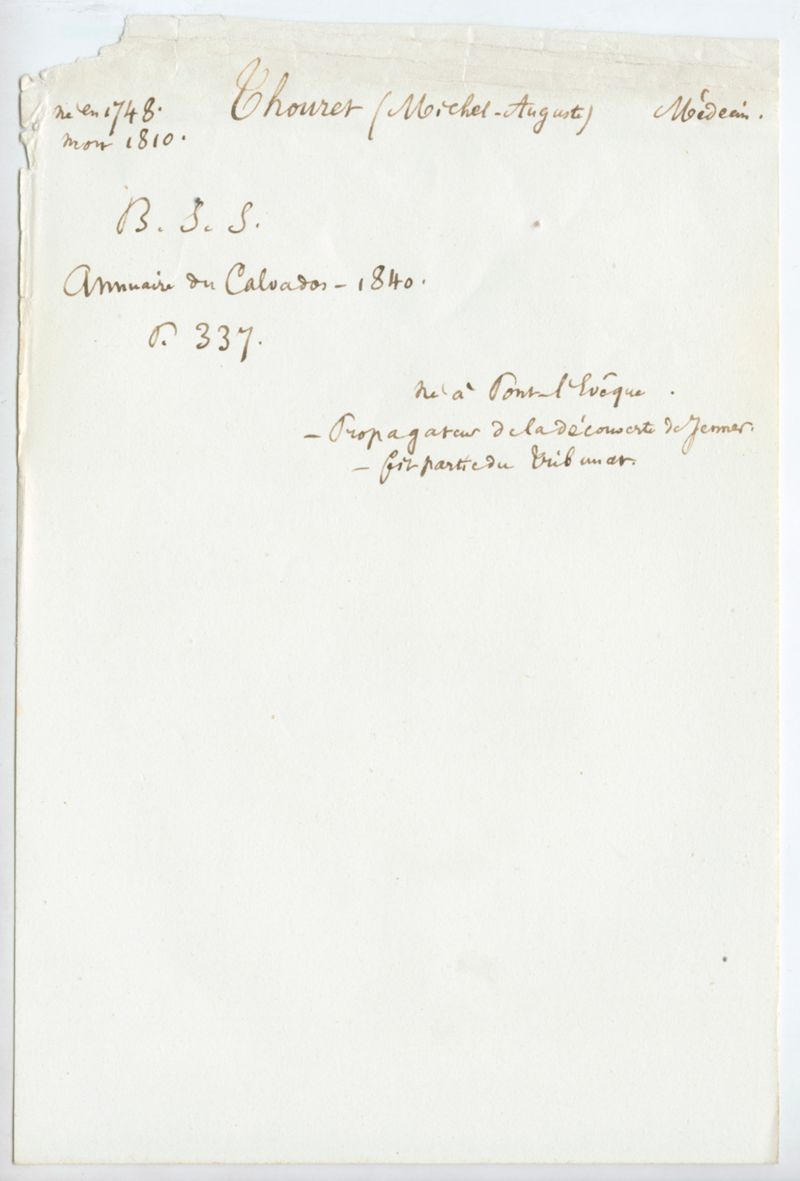 né en 1748. Thouret (Michel-Auguste) Médecin.
mort 1810.
B. S. S.
Annuaire du Calvados - 1840.
P. 337.
né à Pont-l'Evêque.
- Propagateur de la découverte de Jenner.
- fit partie du Tribunat.